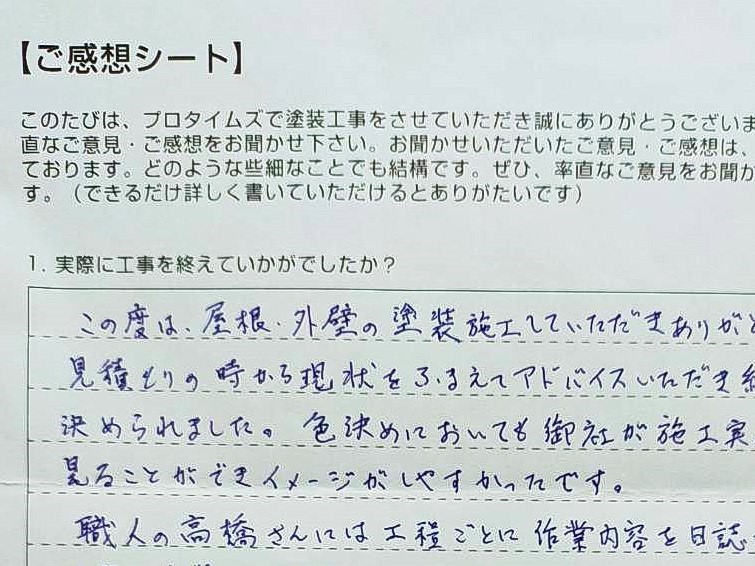 【ご感想シート】
このたびは、プロタイムズで塗装工事をさせていただき誠にありがとうございま
直なご意見・ご感想をお聞かせ下さい。お聞かせいただいたご意見・ご感想は、
ております。どのような些細なことでも結構です。ぜひ、率直なご意見をお聞か
す。（できるだけ詳しく書いていただけるとありがたいです）
1. 実際に工事を終えていかがでしたか？
この度は、屋根・外壁の塗装施工していただきありがと
見積もりの時から現状をふまえてアドバイスいただき
決められました。色決めにおいても御社が施工実
見ることができイメージがしやすかったです。
職人の高橋さんには工程ごとに作業内容を日誌